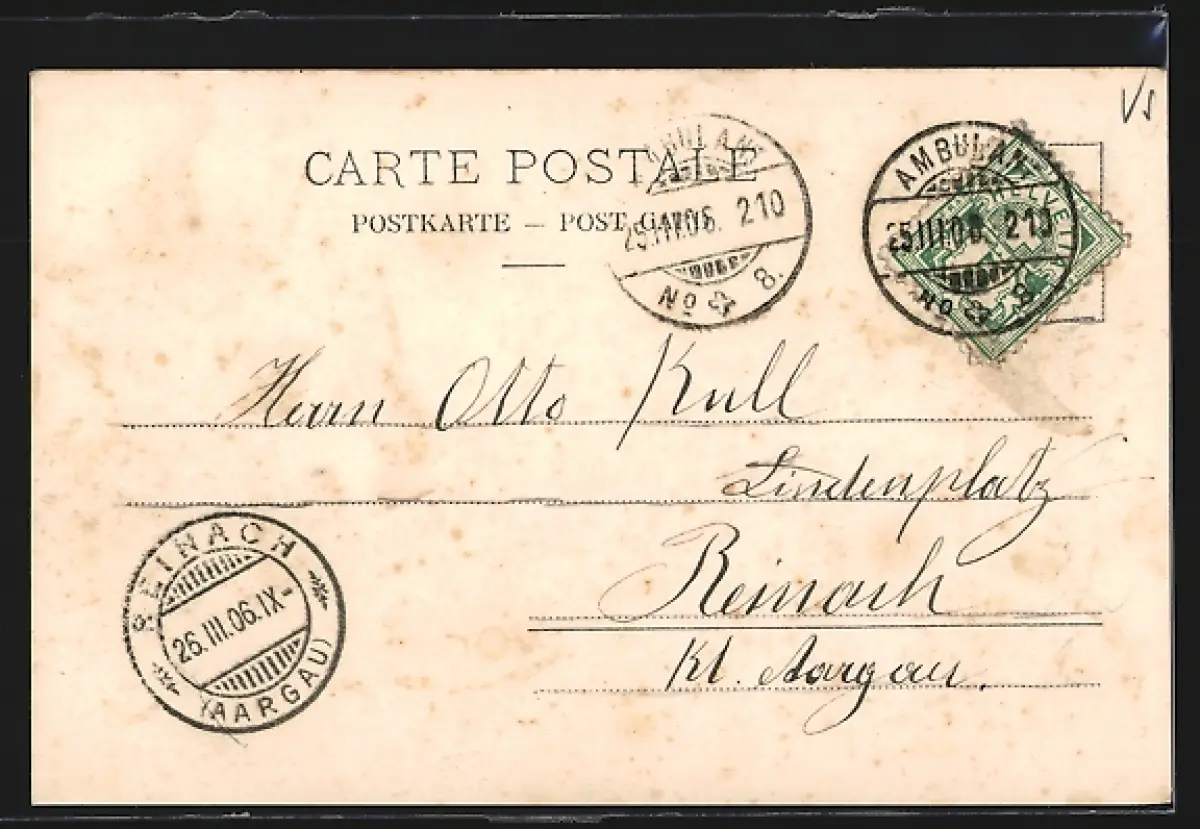 VS
CARTE POSTALE
POSTKARTE — POST CARD
AMBULANT
25.III.06. 210
No 8.
AMBULANT
25.III.06. 210
No 8.
HELVETIA
Herrn Otto Kull
Lindenplatz
Reinach
Kt. Aargau.
REINACH
26.III.06.IX-
(AARGAU)